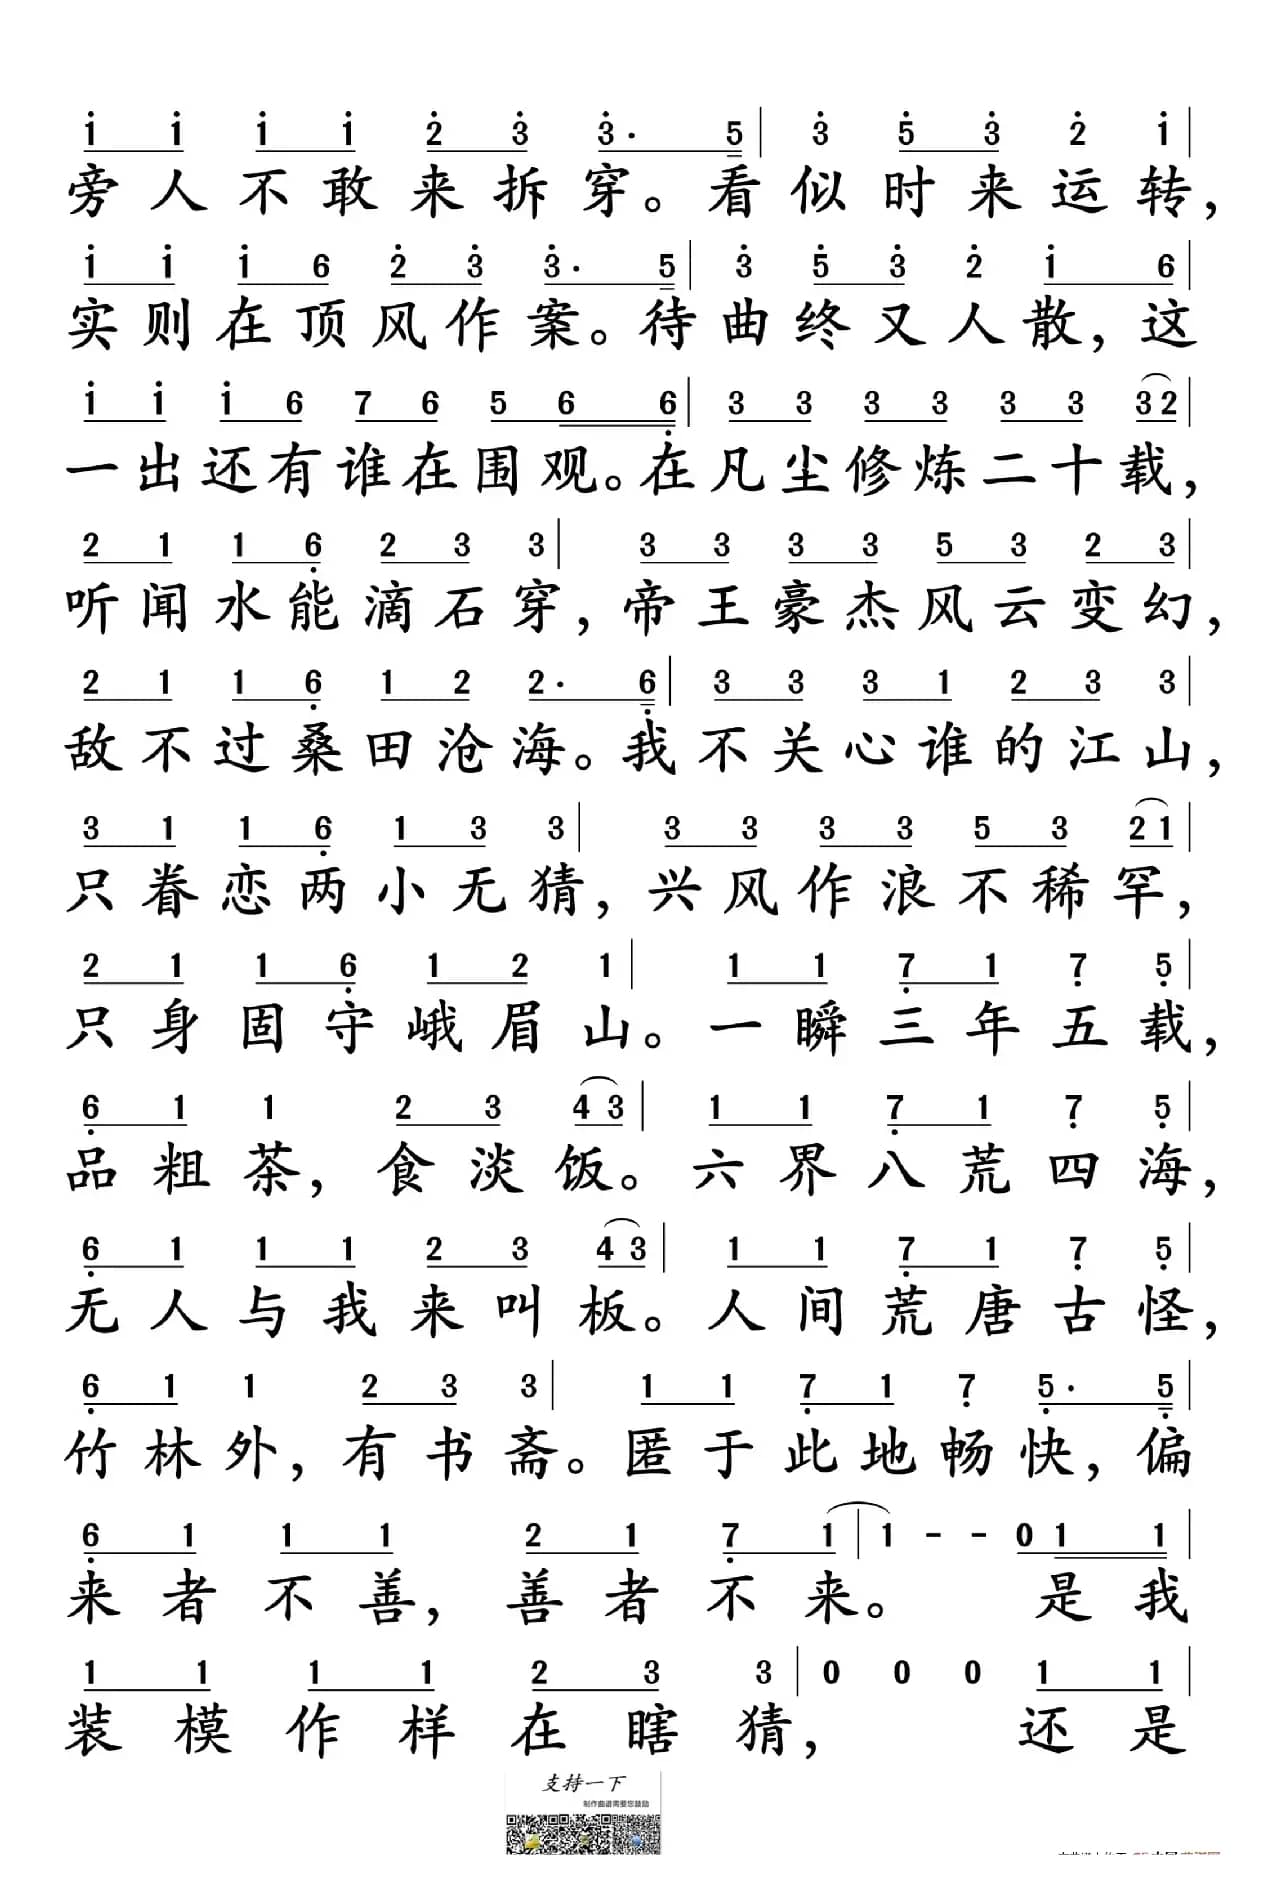 1 1 1 1 2 3 3· 5 | 3 5 3 2 1 |
旁人不敢来拆穿。看似时来运转，
1 1 1 6 2 3 3· 5 | 3 5 3 2 1 6 |
实则在顶风作案。待曲终又人散，这
1 1 1 6 7 6 5 6 6 | 3 3 3 3 3 3 3 2 |
一出还有谁在围观。在凡尘修炼二十载，
2 1 1 6 2 3 3 | 3 3 3 3 5 3 2 3 |
听闻水能滴石穿，帝王豪杰风云变幻，
2 1 1 6 1 2 2· 6 | 3 3 3 1 2 3 3 |
敌不过桑田沧海。我不关心谁的江山，
3 1 1 6 1 3 3 | 3 3 3 3 5 3 2 1 |
只眷恋两小无猜，兴风作浪不稀罕，
2 1 1 6 1 2 1 | 1 1 7 1 7 5 |
只身固守峨眉山。一瞬三年五载，
6 1 1 2 3 4 3 | 1 1 7 1 7 5 |
品粗茶，食淡饭。六界八荒四海，
6 1 1 1 2 3 4 3 | 1 1 7 1 7 5 |
无人与我来叫板。人间荒唐古怪，
6 1 1 2 3 3 | 1 1 7 1 7 5· 5 |
竹林外，有书斋。匿于此地畅快，偏
6 1 1 1 2 1 7 1 | 1 - - 0 1 1 |
来者不善，善者不来。是我
1 1 1 1 2 3 3 | 0 0 0 1 1 |
装模作样在瞎猜，还是
支持一下
制作曲谱需要您鼓励